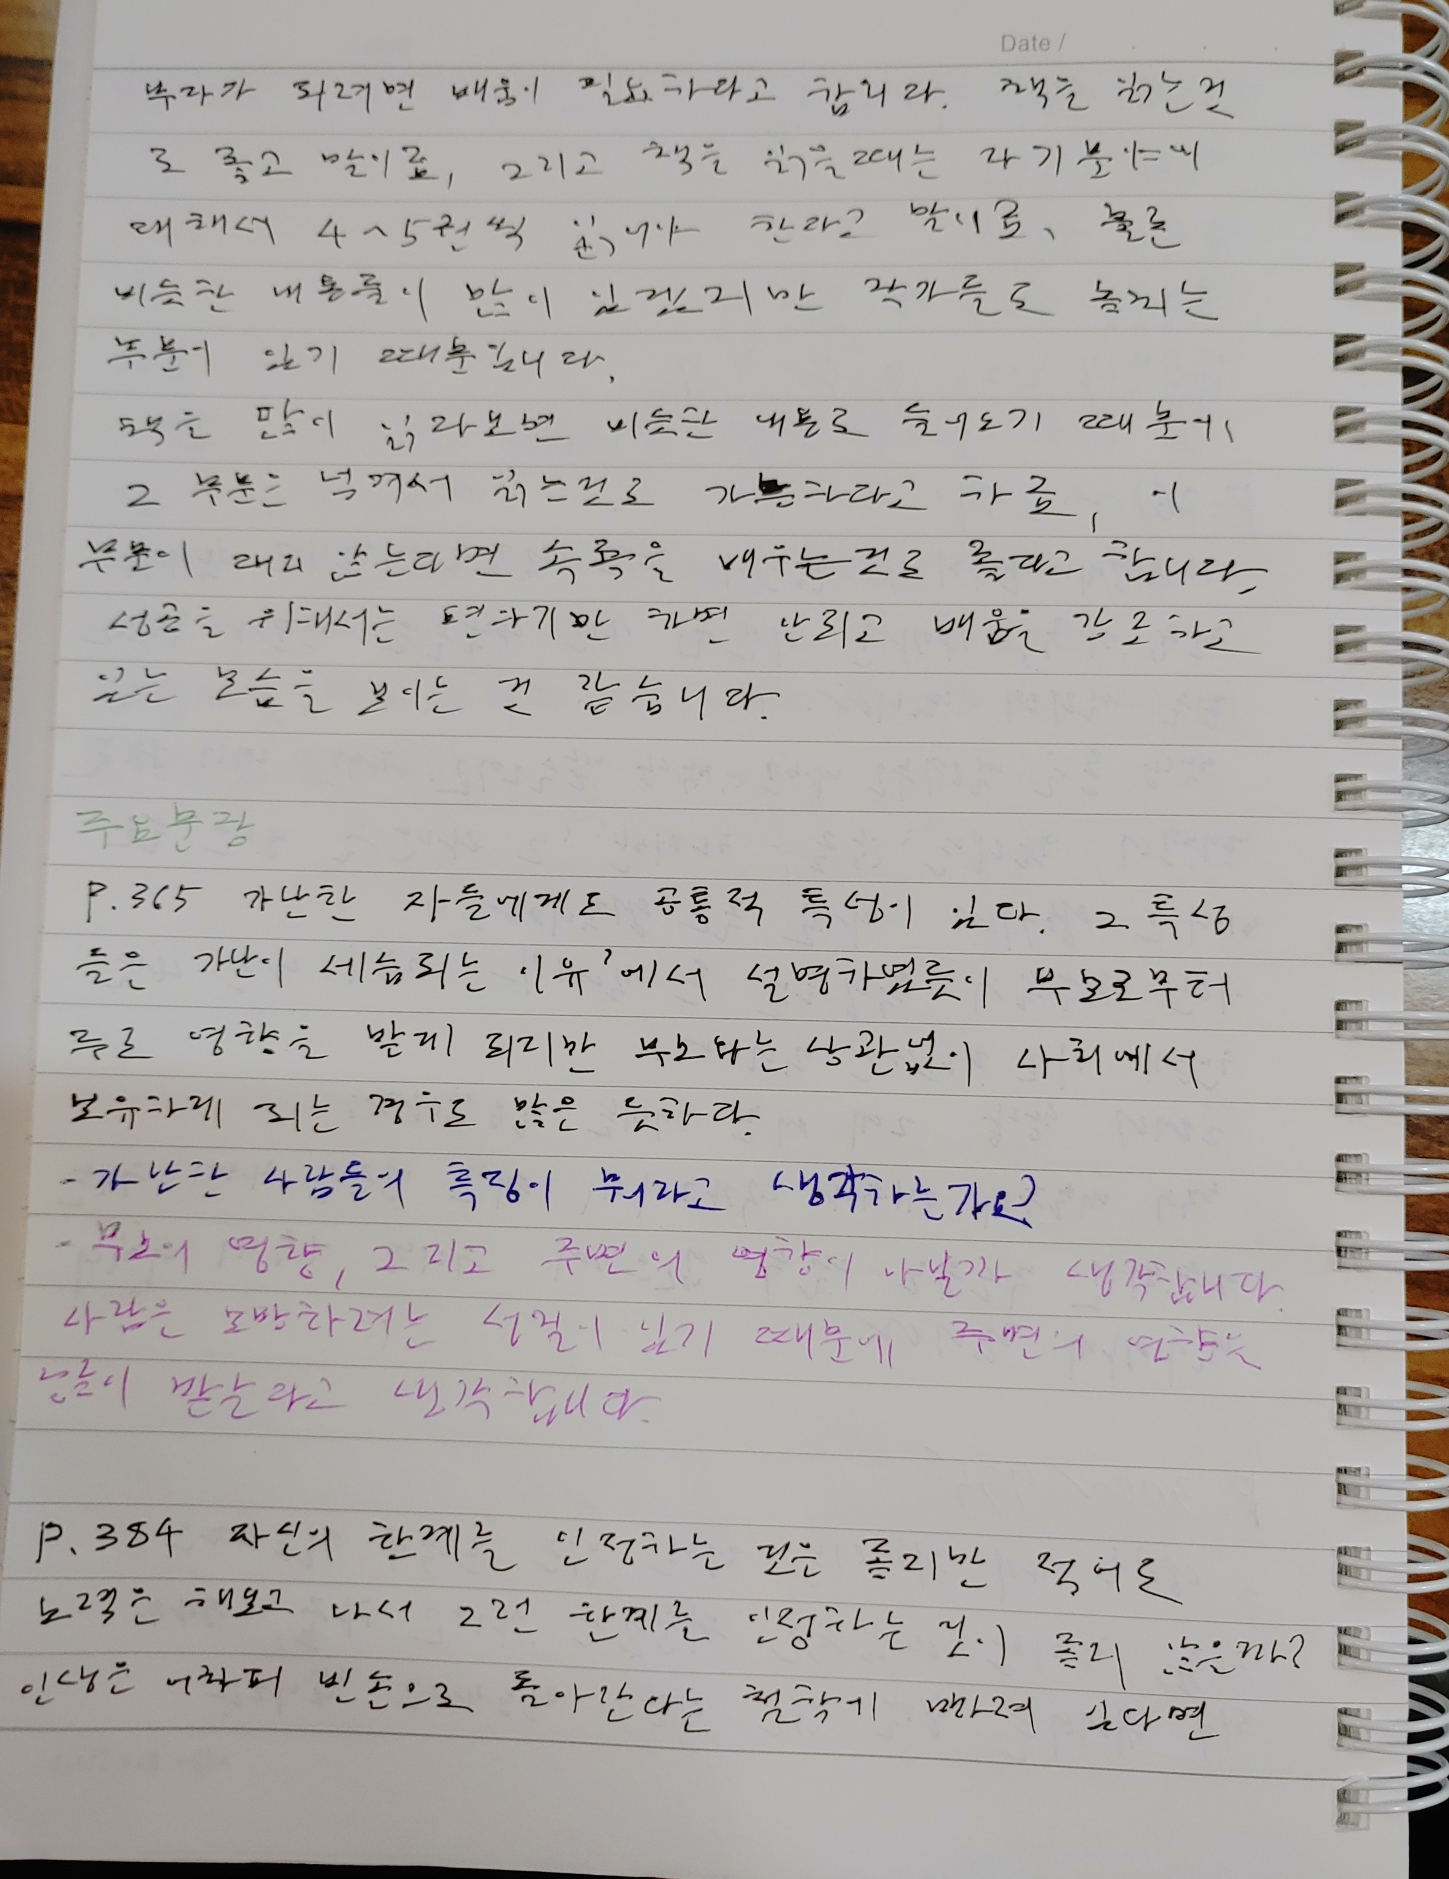 Date /
부자가 되려면 배움이 필요하다고 합니다. 책을 읽는것
도 좋고 말이죠, 그리고 책을 읽을때는 각기 분야에
대해서 4~5권씩 읽어야 한다고 말이죠, 물론
비슷한 내용들이 많이 있겠지만 작가들도 놓치는
부분이 있기 때문입니다.
책을 많이 읽다보면 비슷한 내용도 들어오기 때문에,
그 부분은 넘겨서 읽는것도 가능하다고 하죠, 이
부분이 되지 않는다면 속독을 배우는것도 좋다고 합니다,
성공을 위해서는 편하기만 하면 안되고 배움을 강조하고
있는 모습을 보이는 것 같습니다.
주요문장
P.365 가난한 자들에게도 공통적 특성이 있다. 그 특성
들은 가난이 세습되는 이유'에서 설명하였듯이 부모로부터
주로 영향을 받게 되지만 부모와는 상관없이 사회에서
보유하게 되는 경우도 많은 듯하다.
- 가난한 사람들의 특징이 뭐라고 생각하는가요?
- 부모의 영향, 그리고 주변의 영향이 아닐까 생각합니다.
사람은 모방하려는 성질이 있기 때문에 주변의 영향을
많이 받는다고 생각합니다.
P.384 자신의 한계를 인정하는 것은 좋지만 적어도
노력은 해보고 나서 그런 한계를 인정하는 것이 좋지 않을까?
인생은 어차피 빈손으로 돌아간다는 철학에 빠져 있다면